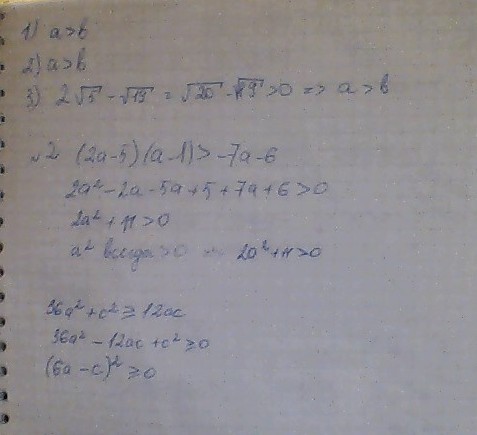 1) a>b
2) a>b
3) 2√5 - √19 = √20 - √19 > 0 => a > b
№2 (2a-5)(a-1)>-7a-6
2a²-2a-5a+5+7a+6>0
2a²+11>0
a² всегда >0 2a²+11>0
36a²+c²≥12ac
36a²-12ac+c²≥0
(6a-c)²≥0